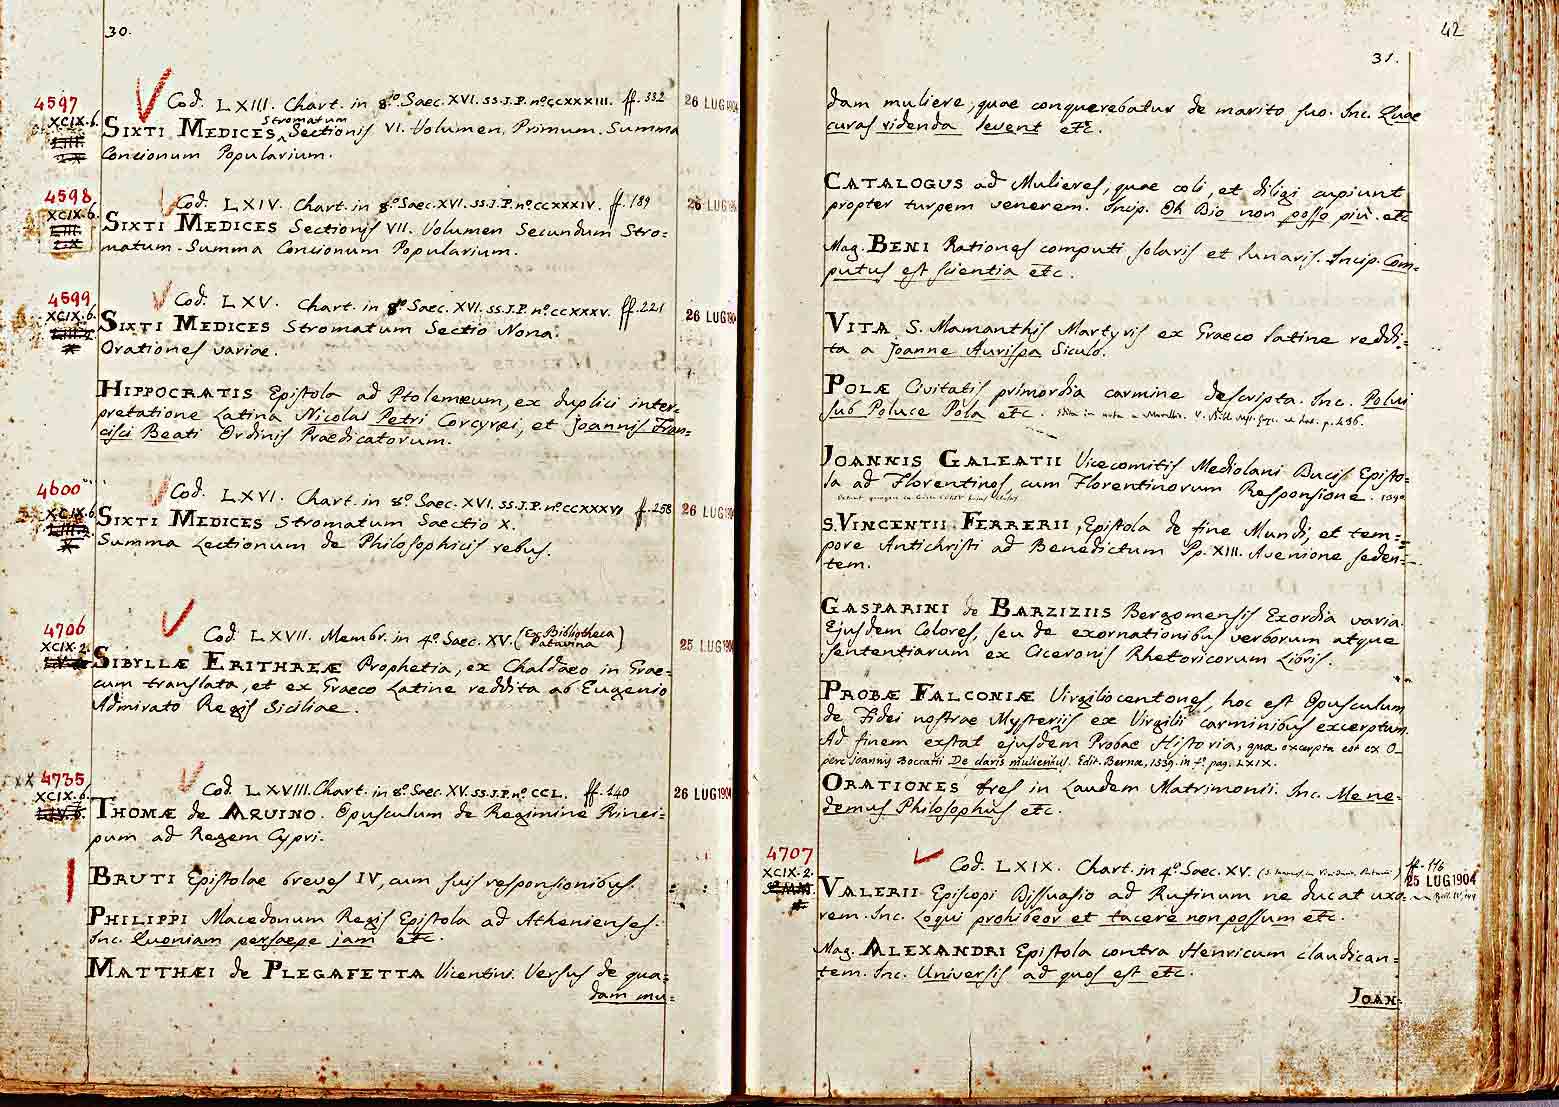 30.
4597
XCIX.6.
Cod. LXIII. Chart. in 8.º Saec. XVI. SS.J.P. nº. CCXXXIII. ff. 332
26 LUG 1904
Stromatum
SIXTI MEDICES ^ Sectionis VI. Volumen Primum. Summa
Concionum Popularium.
4598
XCIX.6.
Cod. LXIV. Chart. in 8.º Saec. XVI. SS.J.P. nº. CCXXXIV. ff. 189
26 LUG
SIXTI MEDICES Sectionis VII. Volumen Secundum Stro=
matum. Summa Concionum Popularium.
4599
XCIX.6.
Cod. LXV. Chart. in 8º Saec. XVI. SS.J.P. nº. CCXXXV. ff. 221
26 LUG 1904
SIXTI MEDICES Stromatum Sectio Nona.
Orationes variae.
HIPPOCRATIS Epistola ad Ptolemæum, ex duplici inter=
pretatione Latina Nicolai Petri Corcyræi, et Joannis Fran=
cisci Beati Ordinis Praedicatorum.
4600
XCIX.6
Cod. LXVI. Chart. in 8.º Saec. XVI. SS.J.P. nº. CCXXXVI ff. 258
26 LUG
SIXTI MEDICES Stromatum Saectio X.
Summa Lectionum de Philosophicis rebus.
4706
XCIX.2.
Cod. LXVII. Membr. in 4.º Saec. XV. (Ex Bibliotheca
Patavina)
25 LUG 1904
SIBYLLÆ ERITHREÆ Prophetia, ex Chaldaeo in Grae=
cum translata, et ex Graeco Latine reddita ab Eugenio
Admirato Regis Siciliae.
4735
XCIX.6.
Cod. LXVIII. Chart. in 8º. Saec. XV. SS.J.P. nº. CCL. ff. 140
26 LUG 1904
THOMÆ de AQUINO. Opusculum de Regimine Princi=
pum ad Regem Cypri.
BRUTI Epistolae breves IV, cum suis responsionibus.
PHILIPPI Macedonum Regis Epistola ad Athenienses.
Inc. Quoniam persaepe jam etc.
MATTHÆI de PLEGAFETTA Vicentini. Versus de qua=
dam mu=
42
31.
dam muliere, quae conquerebatur de marito suo. Inc. Quae
curas ridenda levent etc.
CATALOGUS ad Mulieres, quae coli, et diligi cupiunt
propter turpem venerem. Incip. Oh Dio non posso più. etc
Mag. BENI Rationes computi solaris et lunaris. Incip. Com=
putus est scientia etc.
VITA S. Mamanthis Martyris ex Graeco latine reddi=
ta a Joanne Aurispa Siculo.
POLÆ Civitatis primordia carmine descripta. Inc. Polui
sub Poluce Pola etc. p. 436.
JOANNIS GALEATII Vicecomitis Mediolani Ducis Episto=
la ad Florentinos, cum Florentinorum Responsione. 1390
S. VINCENTII FERRERII, Epistola de fine Mundi, et tem=
pore Antichristi ad Benedictum Pp. XIII. Avenione seden=
tem.
GASPARINI de BARZIZIIS Bergomensis Exordia varia.
Ejusdem Colores, seu de exornationibus verborum atque
sententiarum ex Ciceronis Rhetoricorum Libris.
PROBÆ FALCONIÆ Virgiliocentones, hoc est Opusculum
de Fidei nostrae Mysteriis ex Virgilii carminibus excerptum.
Ad finem exstat ejusdem Probae Historia, quæ excerpta est ex O=
pere Joannis Boccatii De claris mulieribus. Edit. Bernæ, 1539. in fº. pag. LXIX.
ORATIONES tres in Laudem Matrimonii. Inc. Mene=
demus Philosophus etc.
4707
XCIX.2.
Cod. LXIX. Chart. in 4.º Saec. XV.
ff. 116
25 LUG 1904
VALERII Episcopi Dissuasio ad Rufinum ne ducat uxo=
rem. Inc. Loqui prohibeor et tacere non possum etc.
Mag. ALEXANDRI Epistola contra Henricum claudican=
tem. Inc. Universis ad quos est etc.
JOAN=